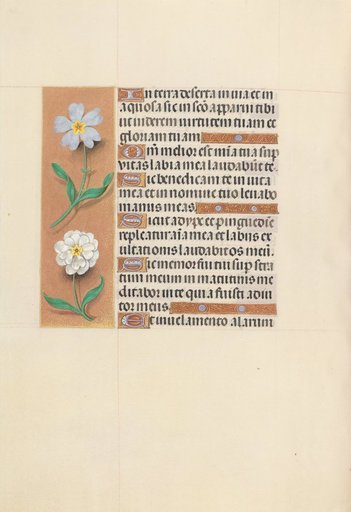 In terra deserta in uia et in
aquosa sic in sco apparui tibi
ut uiderem uirtutem tuam et
gloriam tuam
Qm melior est mia tua sup
vitas labia mea laudabūt te
Sic benedicam te in uita
mea et in nomine tuo leuabo
manus meas
Sicut adype et pinguedīe
repleatur aīa mea et labiis ex
ultationis laudabit os meū
Sic memor fui tui sup stra
tum meum in matutinis me
ditabor in te quia fuisti adiu
tor meus
Et in uelamento alarum